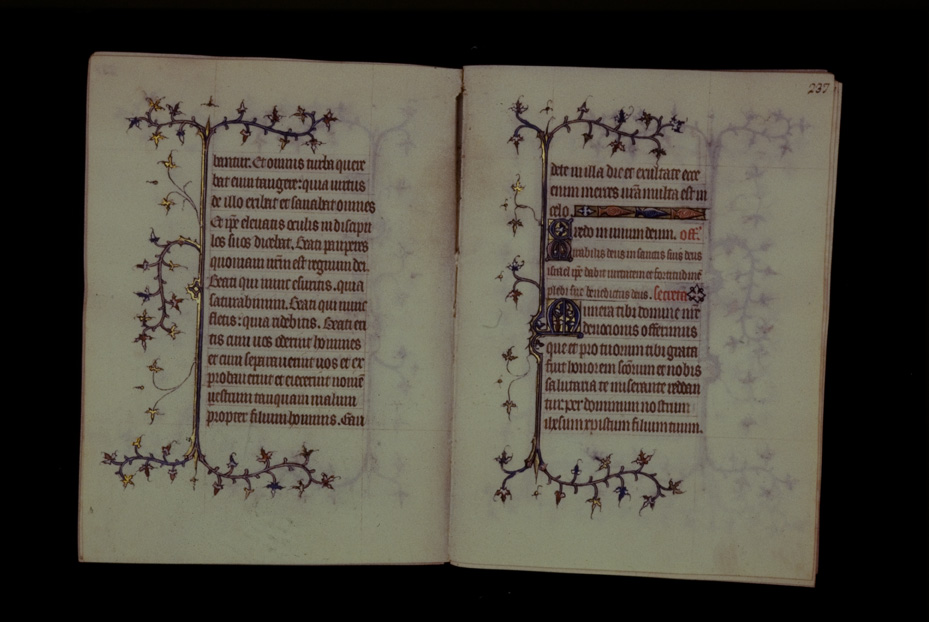 bantur. Et omnis turba quere
bat eum tangere: quia uirtus
de illo exibat et sanabat omnes
Et ip̄e eleuatis oculis in discipu
los suos dicebat. Beati pauperes
quoniam ur̄m est regnum dei.
Beati qui nunc esuritis. quia
saturabimini. Beati qui nunc
fletis: quia ridebitis. Beati eri
tis cum uos oderint homines
et cum separauerint uos et ex
probauerint et eiecerint nomē
uestrum tanquam malum
propter filium hominis. Gau
237
dete in illa die et exultate ecce
enim merces ur̄a multa est in
celo.
Credo in unum deum. off.
Mirabilis deus in sanctis suis deus
israel ip̄e dabit uirtutem et fortitudinē
plebi sue benedictus deus. secreta
Munera tibi domine nr̄e
deuocionis offerimus
que et pro tuorum tibi grata
sint honorem sc̄orum et nobis
salutaria te miserante reddan
tur. per dominum nostrum
ihesum xpistum filium tuum.